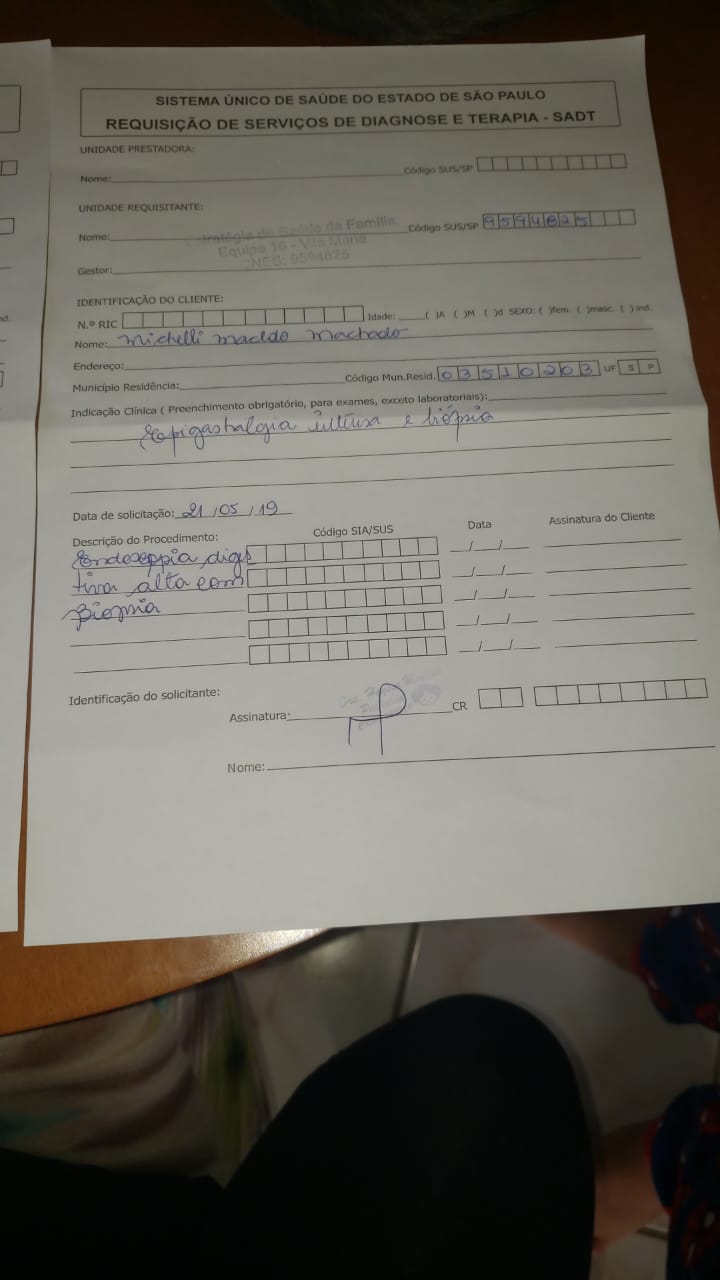 SISTEMA ÚNICO DE SAÚDE DO ESTADO DE SÃO PAULO
REQUISIÇÃO DE SERVIÇOS DE DIAGNOSE E TERAPIA - SADT
UNIDADE PRESTADORA:
Nome: Código SUS/SP
UNIDADE REQUISITANTE:
Estratégia de Saúde da Família
Nome: Código SUS/SP 9594825
Equipe 16 - Vila Maria
CNES: 9594825
Gestor:
IDENTIFICAÇÃO DO CLIENTE:
N.º RIC Idade: ( )A ( )M ( )d SEXO: ( )fem. ( )masc. ( ) ind.
Nome: Michelli Macêdo Machado
Endereço:
Município Residência: Código Mun.Resid. 03510203 UF SP
Indicação Clínica ( Preenchimento obrigatório, para exames, exceto laboratoriais):
Epigastralgia e
Data de solicitação: 21/05/19
Descrição do Procedimento: Código SIA/SUS Data Assinatura do Cliente
Endoscopia diges
tiva alta com
Biopsia
Identificação do solicitante:
Dra.
Assinatura: CR
Nome:
ind.